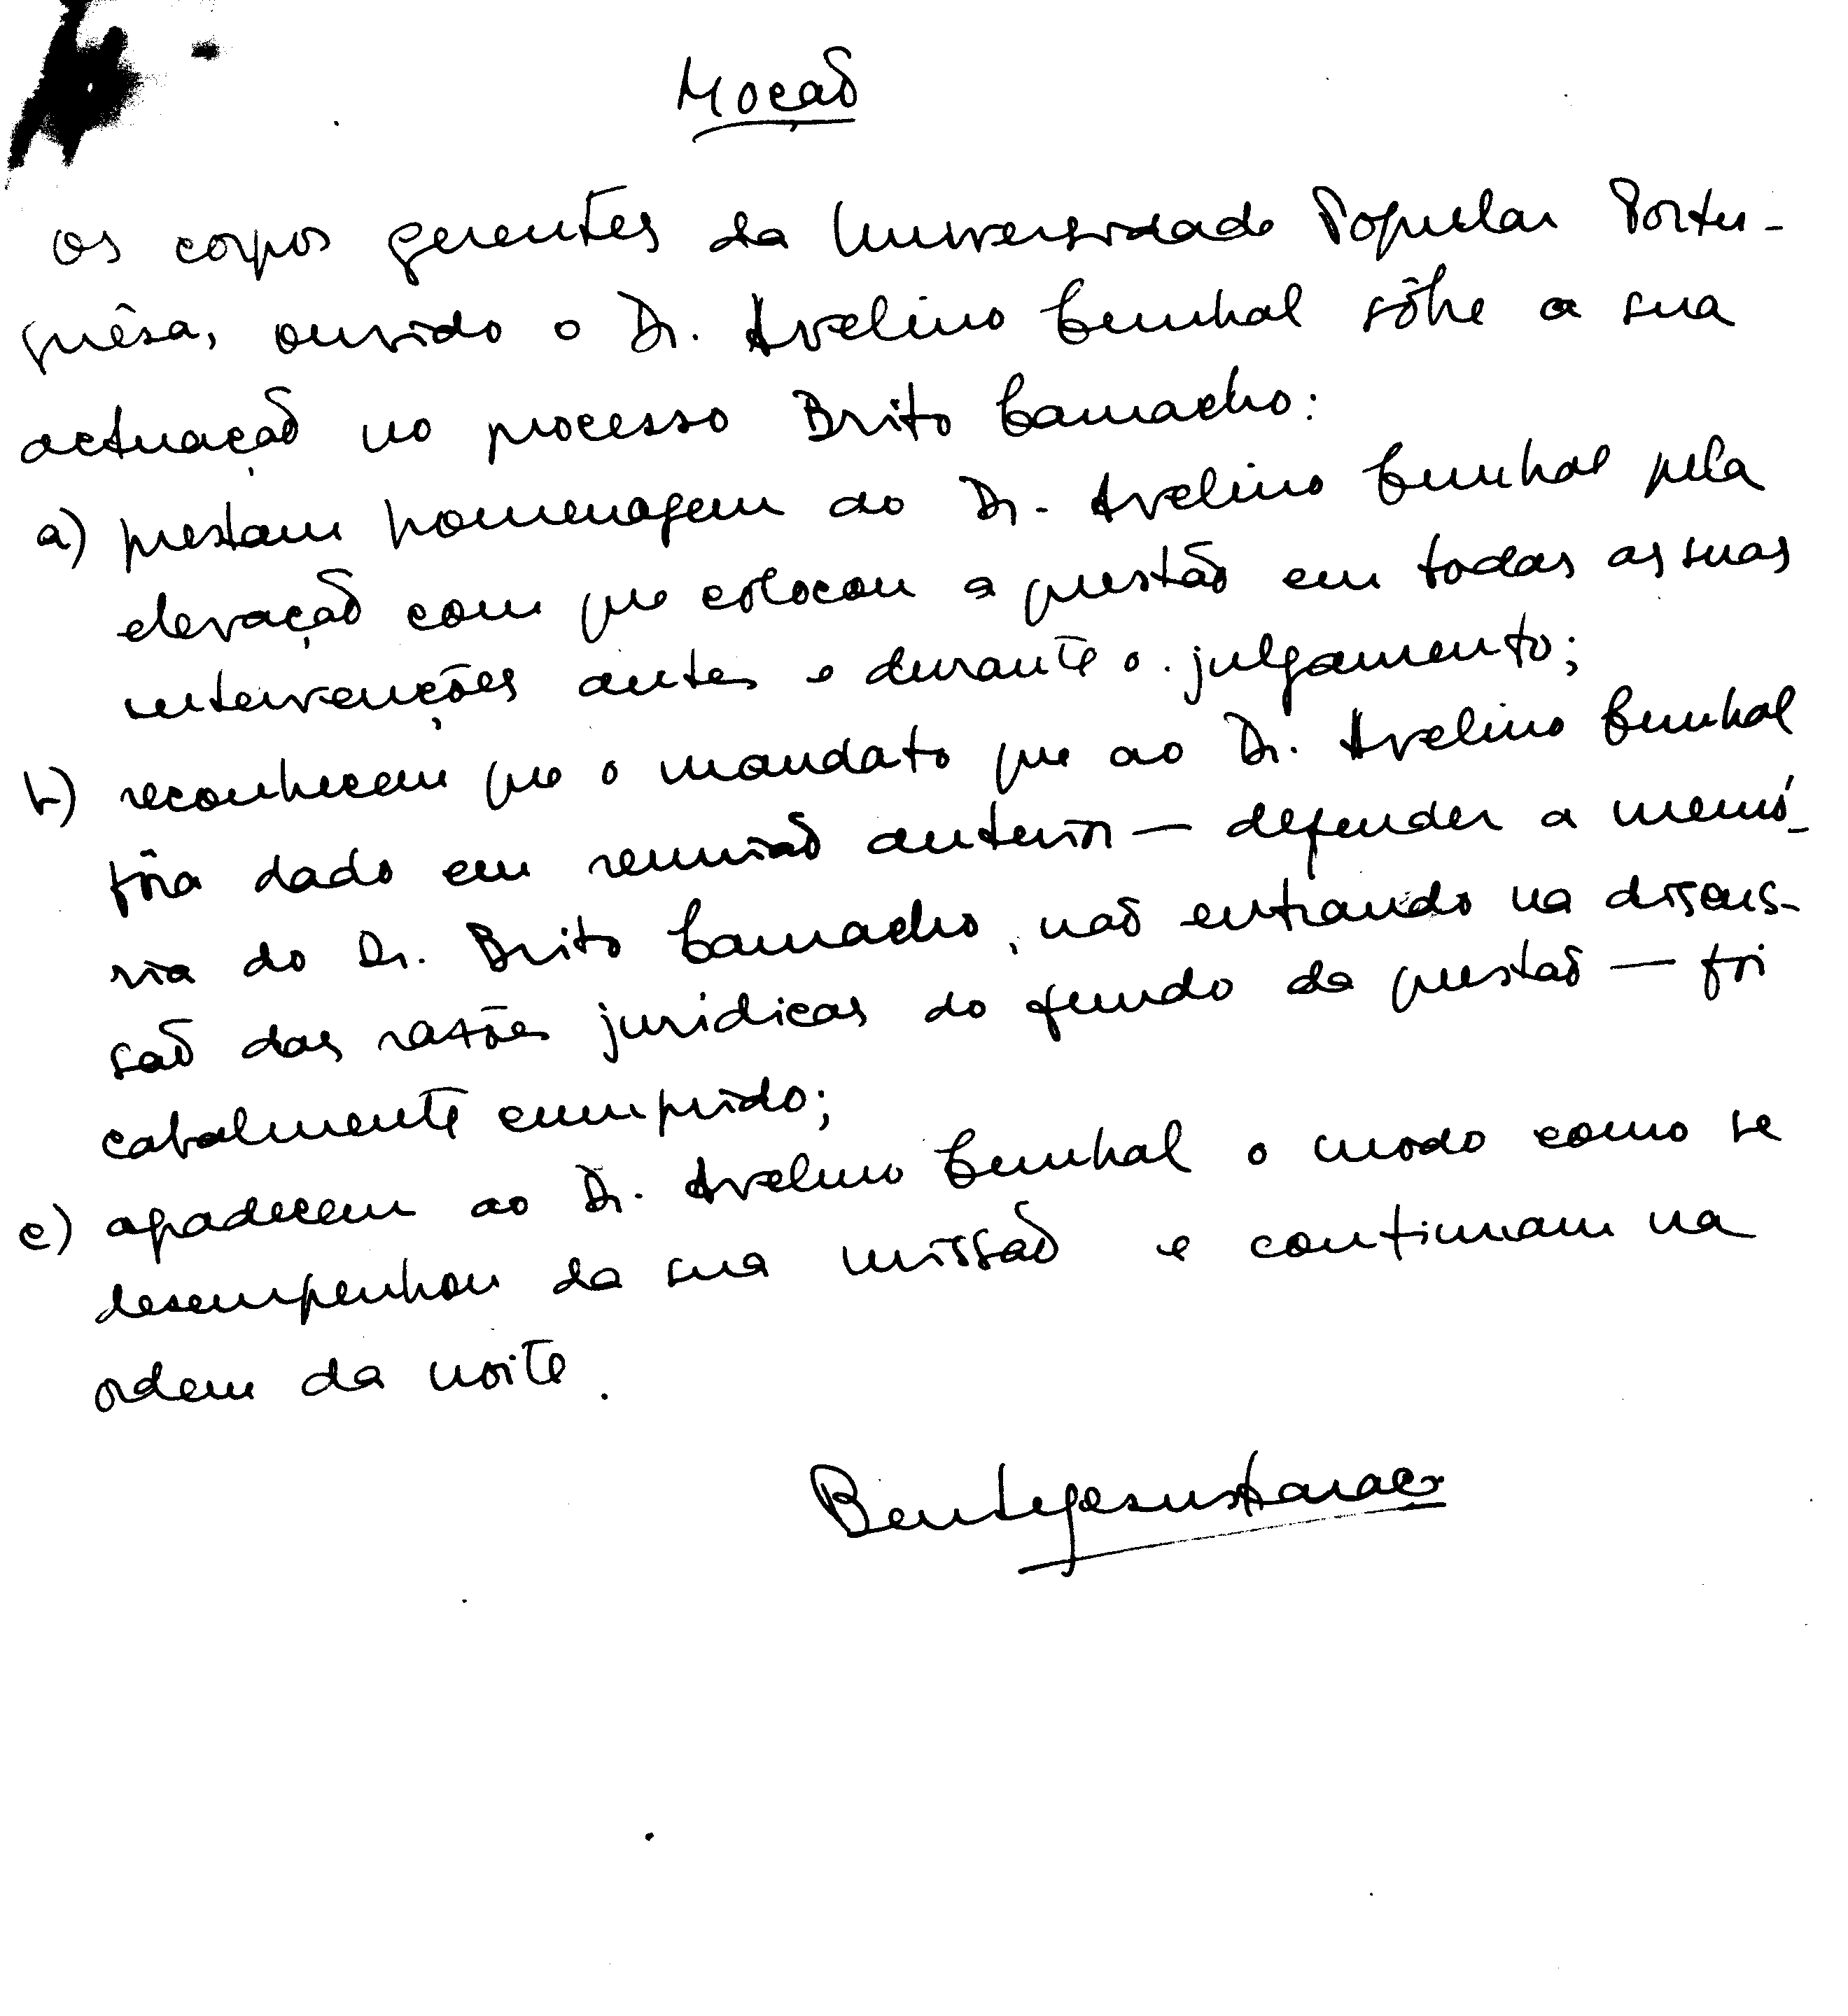 Moção
Os corpos gerentes da Universidade Popular Portu-
guêsa, ouvido o Dr. Avelino Cunhal sôbre a sua
actuação no processo Brito Camacho:
a) prestam homenagem ao Dr. Avelino Cunhal pela
elevação com que colocou a questão em todas as suas
intervenções antes e durante o julgamento;
b) reconhecem que o mandato que ao Dr. Avelino Cunhal
fôra dado em reunião anterior — defender a memó-
ria do Dr. Brito Camacho, não entrando na discus-
são das razões juridicas do fundo da questão — foi
cabalmente cumprido;
c) agradecem ao Dr. Avelino Cunhal o modo como se
desempenhou da sua missão e continuam na
ordem da noite.
Bentojesuscaraça